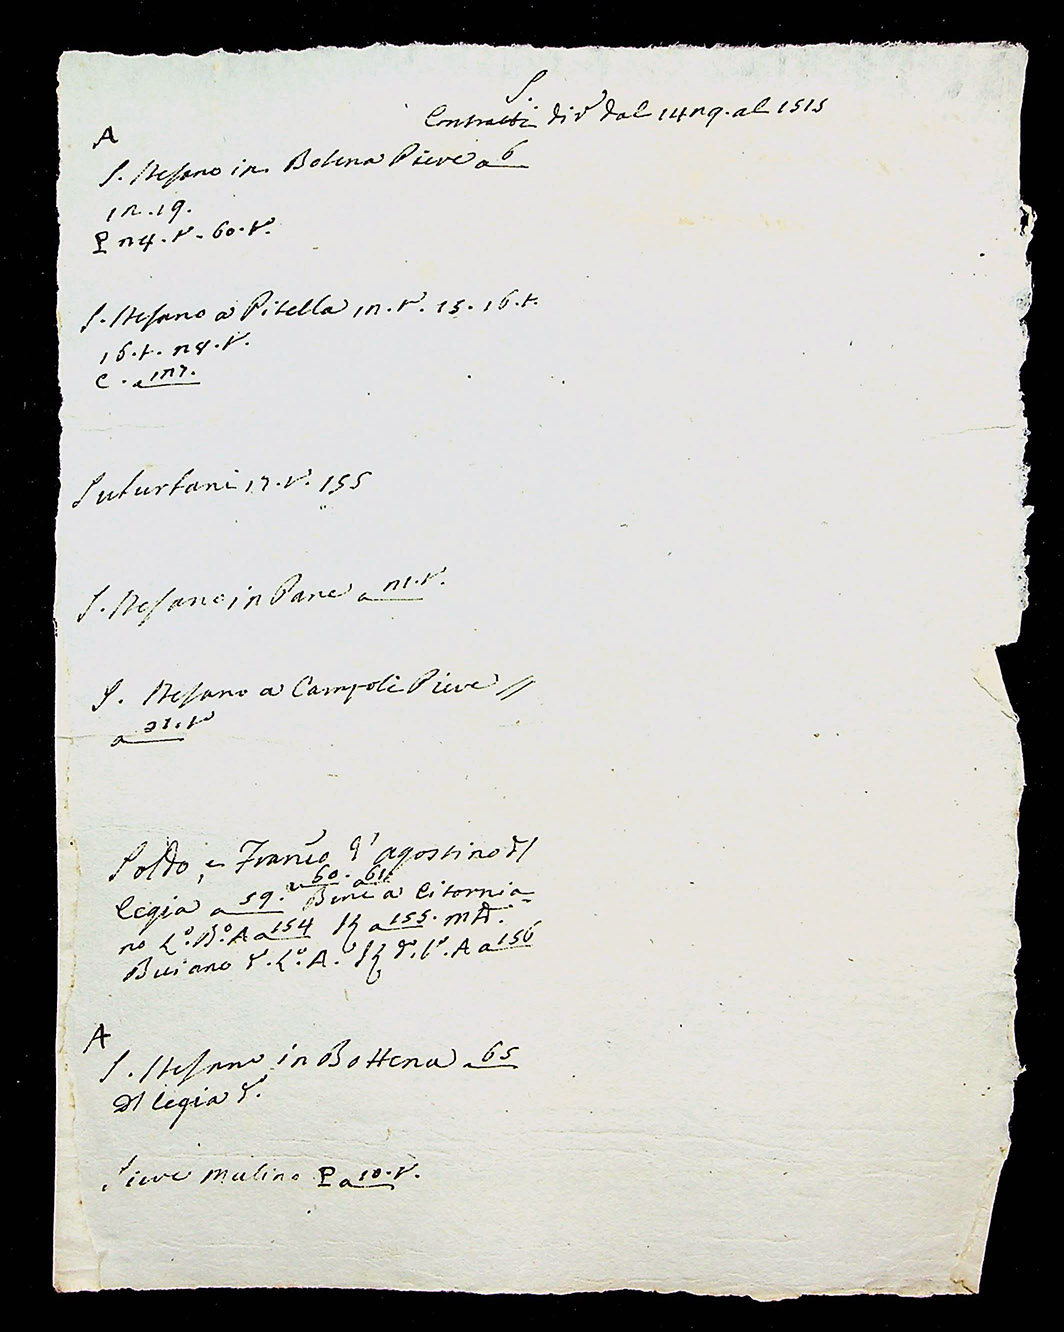 S.
Contratti di v. dal 1479. al 1515
A
S. Stefano in Botena Pieve a 6
17. 19.
P 74. v. 60. v.
S. Stefano a Pitella 17. v. 15. 16. t.
16. t. 78. v.
C. a 177.
Suturtani 17. v. 155
S. Stefano in Pane a 71. v.
S. Stefano a Campoli Pieve //
a 21. v
Soldo, e Franco d' agostino dl
legia a 59. a 60. a 61. Bini a Citornia-
no L.º B.º A a 154 a 155.
Buiano L.º A. A a 156
A
S. Stefano in Bottena a 65
Dl legia
Sieve mulino P a 10. v.